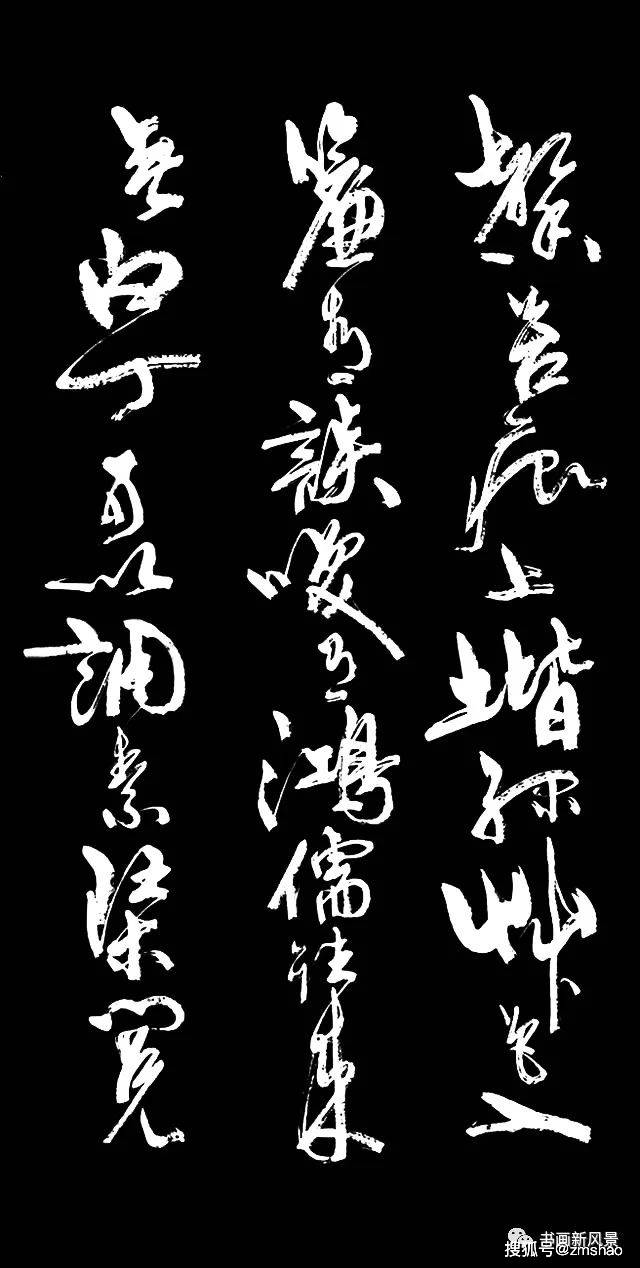 馨苔痕上堦緑艸色入
簾青談咲有鴻儒往来
無白丁可以調素琹閲
书画新风景
搜狐号@zmshao